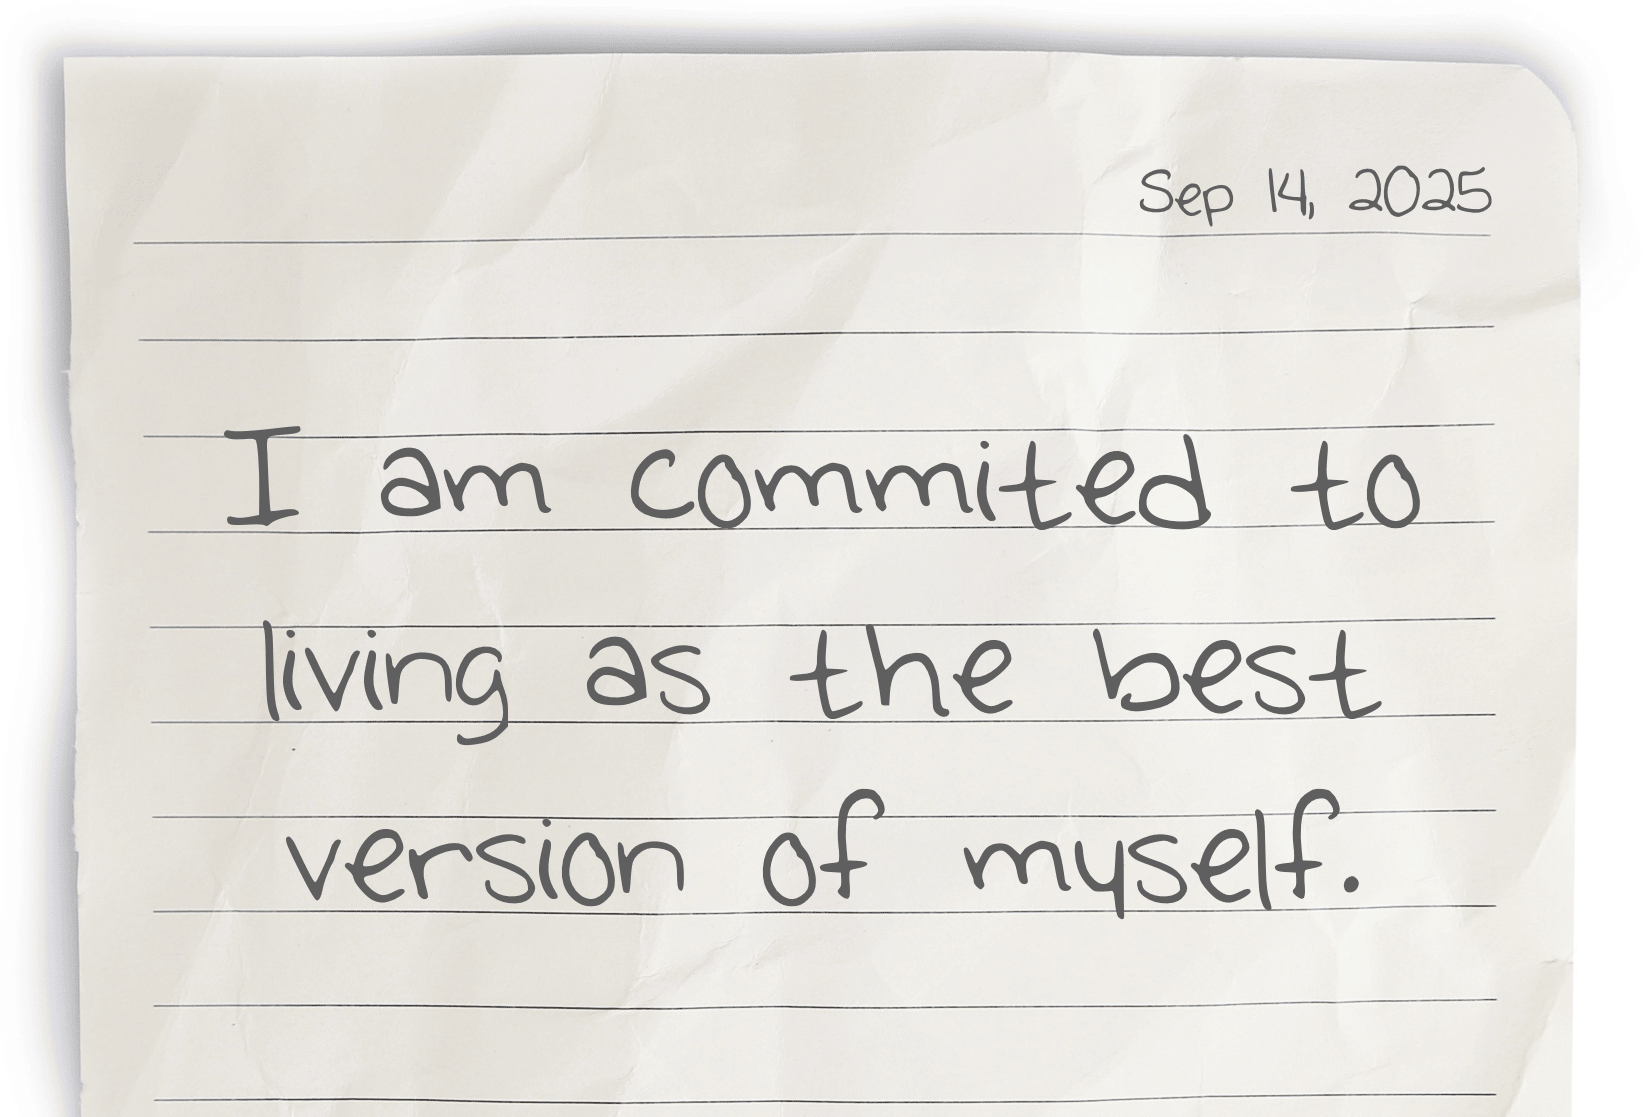 Sep 14, 2025
I am commited to
living as the best
version of myself.